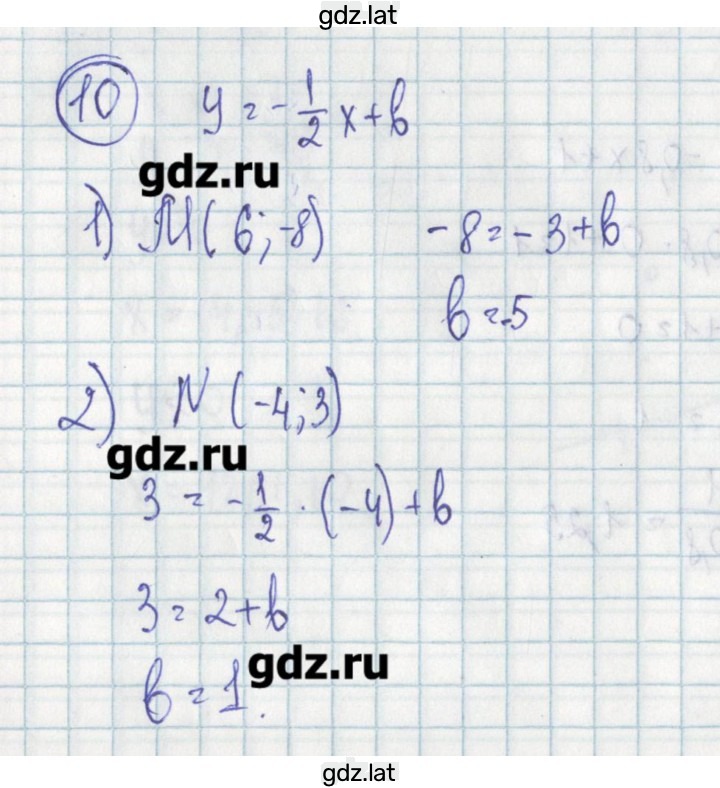 gdz.lat
10 y = -1/2 x + b
gdz.ru
1) M(6; -8) -8 = -3 + b
b = -5
2) N(-4; 3)
gdz.ru
3 = -1/2 · (-4) + b
3 = 2 + b
gdz.ru
b = 1.
gdz.lat